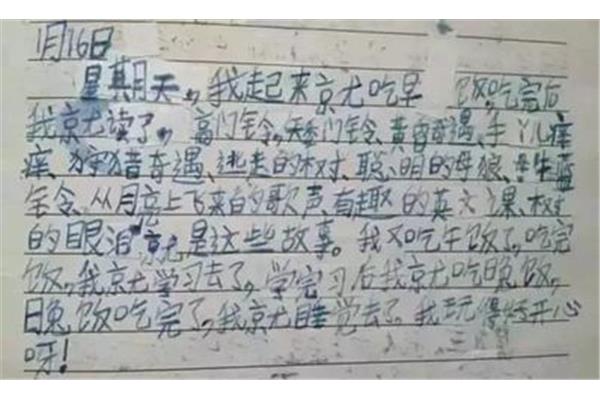 1月16日
星期天,我起来京尤吃早 饭,吃完后
我京尤读了,高门铃、矮门铃、黄昏奇遇、手丫儿痒
痒、狩猎奇遇、逃走的树、聪明的母狼、牛蓝
铃、从月亮上飞来的歌声、有趣的英文课、树
的眼泪京尤是这些故事。我又吃午饭了,吃完
饭,我京尤学习去了,学完习后我京尤吃晚饭,
晚饭吃完了,我京尤睡觉去了。我玩得特开心
呀!